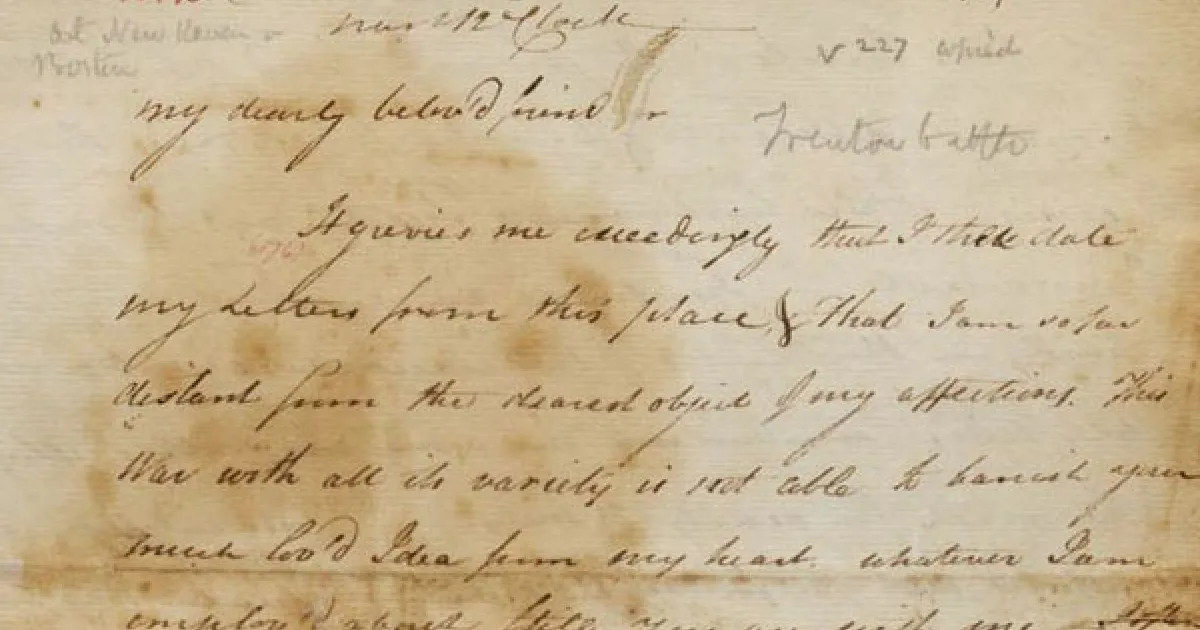 at New Haven &
Boston
near 12 O Clock
v 227 copied
Trenton battle
my dearly belov'd friend
It grevies me exceedingly that I still date
my Letters from this place, & that I am so far
distant from the dearest object of my affections. This
War with all its variety is not able to banish your
much lov'd Idea from my heart. whatever I am
employ'd about still you are with me